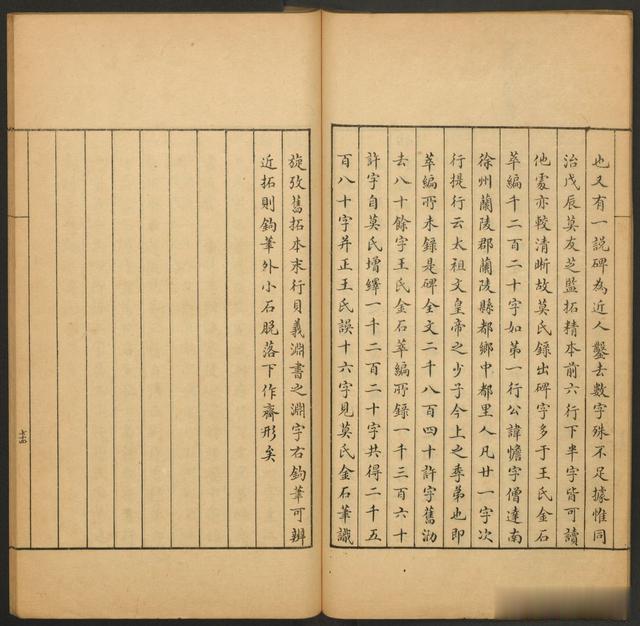 也又有一說碑為近人鑿去數字殊不足據惟同
治戊辰莫友芝監拓精本前六行下半字皆可讀
他處亦較清晰故莫氏錄出碑字多于王氏金石
萃編千二百二十字如第一行公諱憺字僧達南
徐州蘭陵郡蘭陵縣都鄉中都里人凡廿一字次
行提行云太祖文皇帝之少子今上之季弟也即
萃編所未錄是碑全文二千八百四十許字舊泐
去八十餘字王氏金石萃編所錄一千三百六十
許字自莫氏增繹一千二百二十字共得二千五
百八十字并正王氏誤十六字見莫氏金石筆識
旋攷舊拓本末行貝義淵書之淵字右鉤筆可辨
近拓則鉤筆外小石脫落下作齊形矣
十四